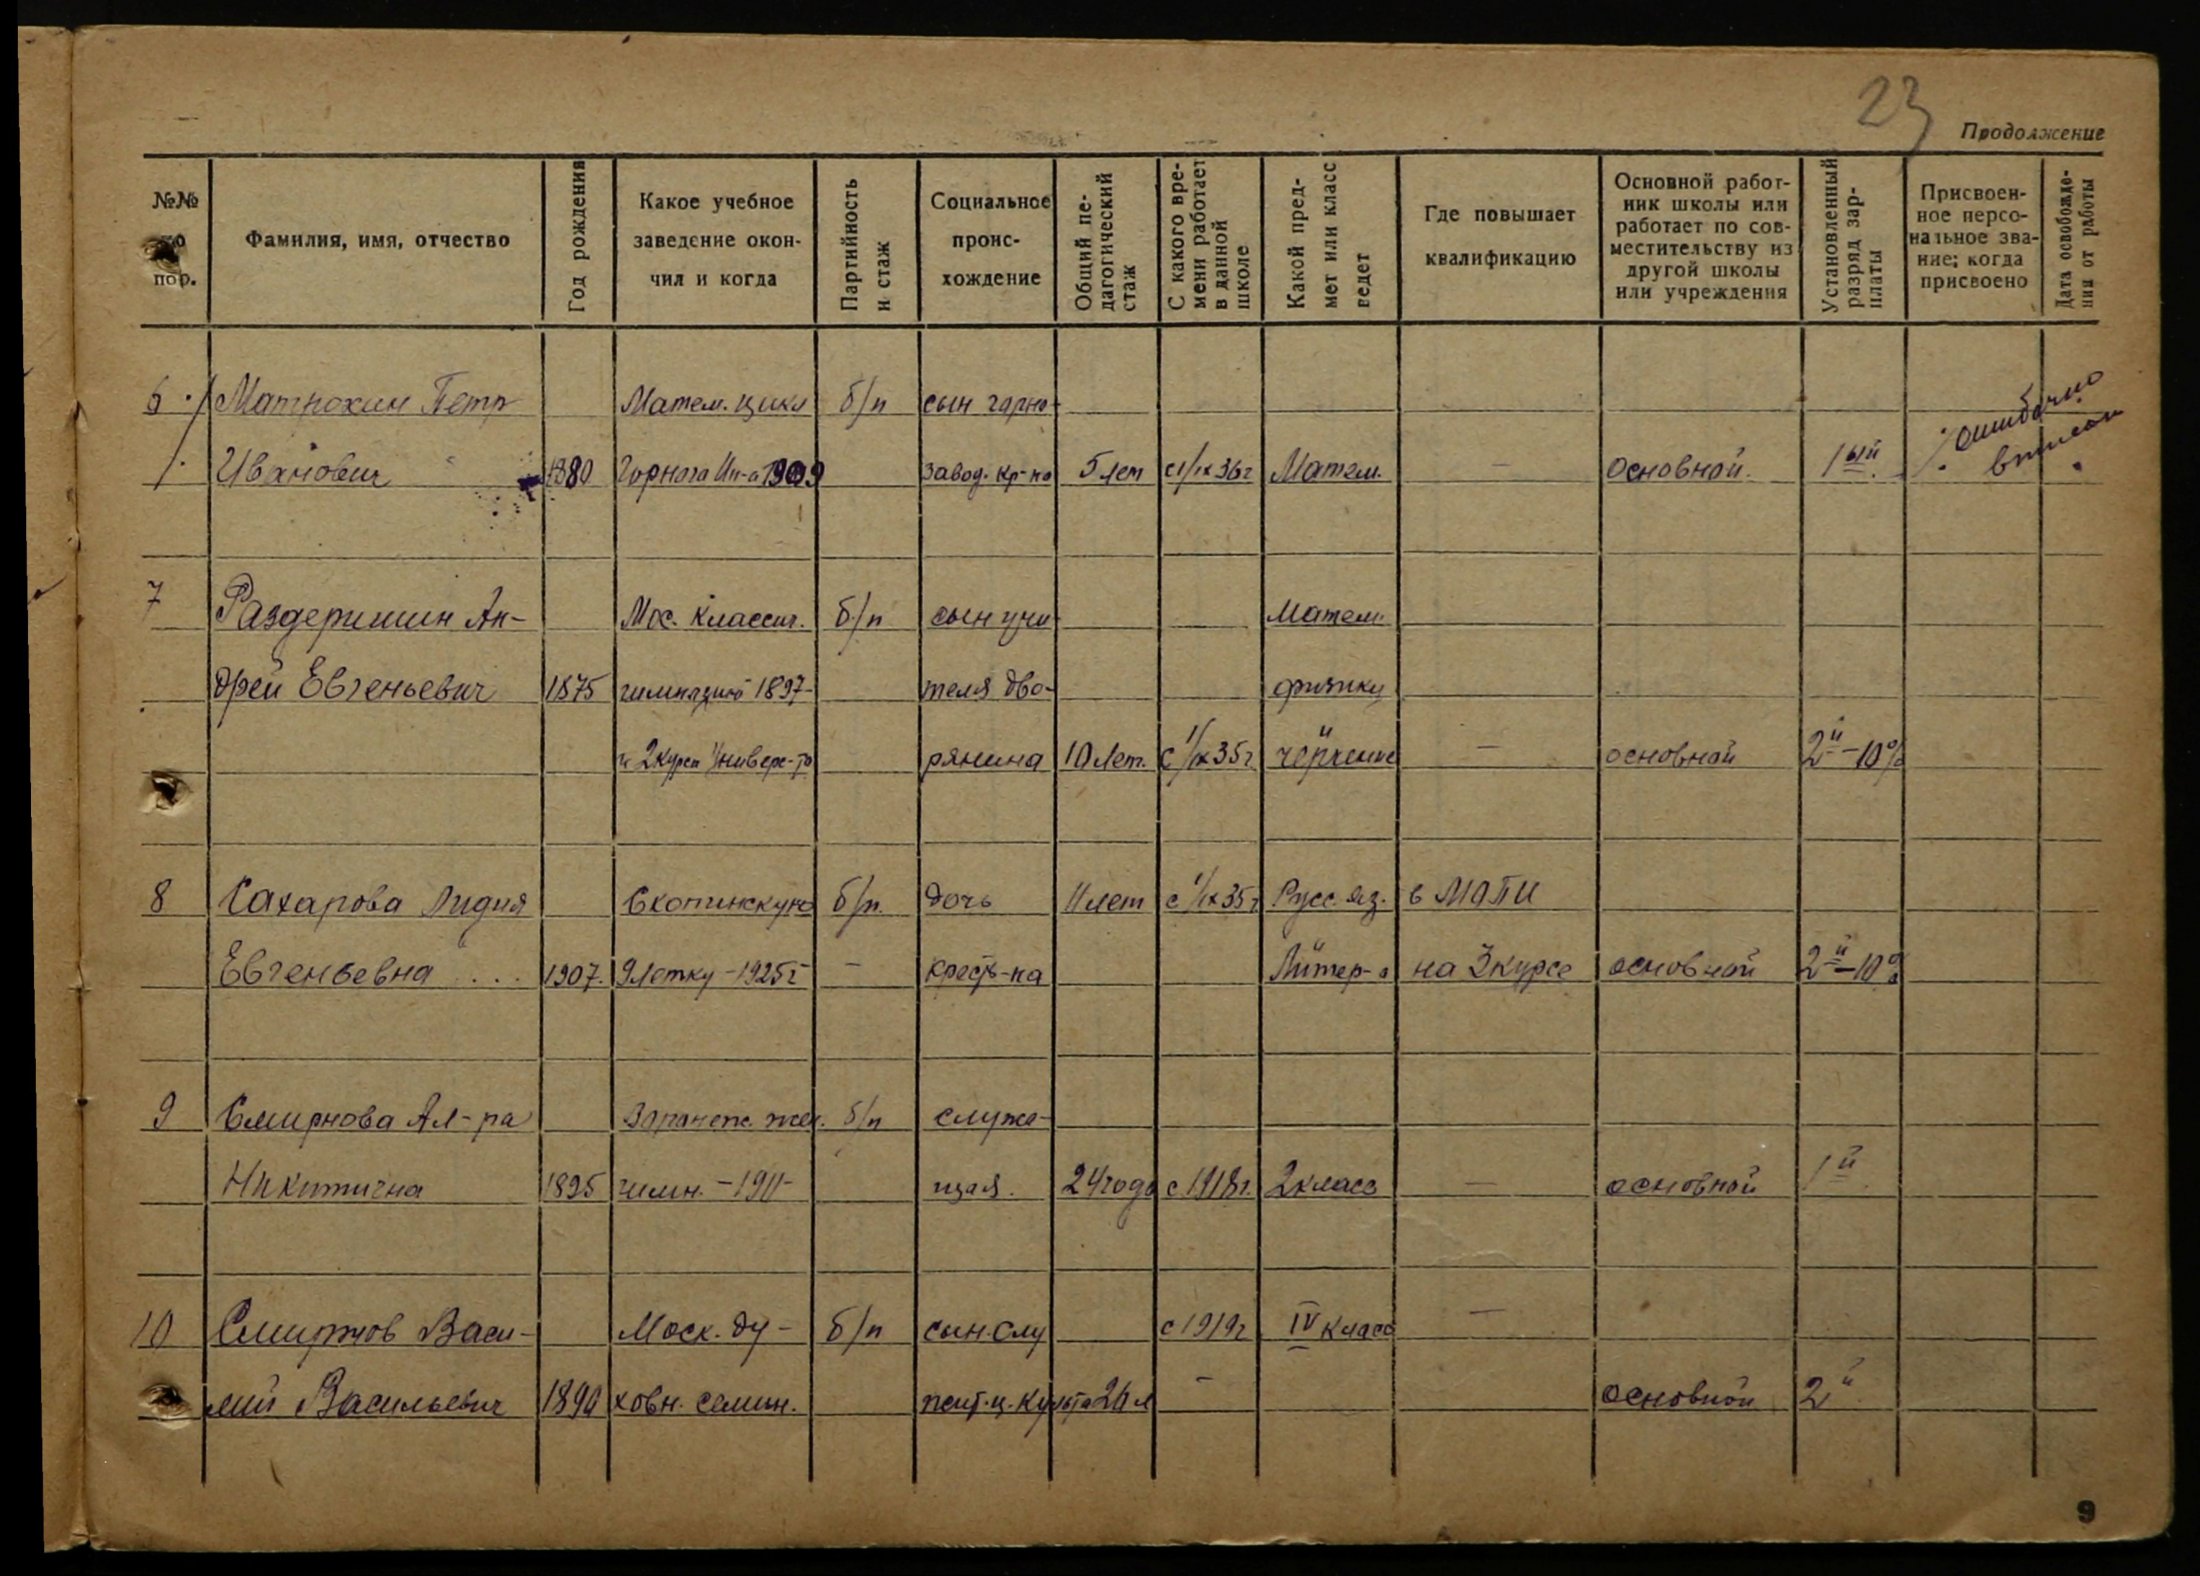 23
Продолжение
№№ по пор.
Фамилия, имя, отчество
Год рождения
Какое учебное заведение окончил и когда
Партийность и стаж
Социальное происхождение
Общий педагогический стаж
С какого времени работает в данной школе
Какой предмет или класс ведет
Где повышает квалификацию
Основной работник школы или работает по совместительству из другой школы или учреждения
Установленный разряд зарплаты
Присвоенное персональное звание; когда присвоено
Дата освобождения от работы
6 Матюхин Петр Матем. цикл б/п сын горно- ошибочно
Иванович 1880 Горного Ин-а 1909 завод. кр-на 5 лет с 1/IX 36г Матем. — основной. 1ый вписан
7 Раздеришин Ан- Мос. классич. б/п сын учи- Матем.
дрей Евгеньевич 1875 гимназию 1897- теля дво- физику
и 2 курса Универс-та рянина 10 лет. с 1/IX 35г. черчение — основной 2й -10%
8 Сахарова Лидия Скопинскую б/п. дочь 11 лет с 1/IX 35г Русс. яз. в МОПИ
Евгеньевна .... 1907. 9 летку -1925г — крест-на Литер-а на 3 курсе основной 2й -10%
9 Смирнова Ал-ра жен. б/п служа-
Никитична 1895 гимн. -1911- щая. 24 года с 1918г. 2 класс — основной 1й
10 Смирнов Васи- Моск. ду- б/п сын. слу с 1919г IV класс —
лий Васильевич 1890 ховн. семин. жит. ц. культа 26 л — основной 2й
9